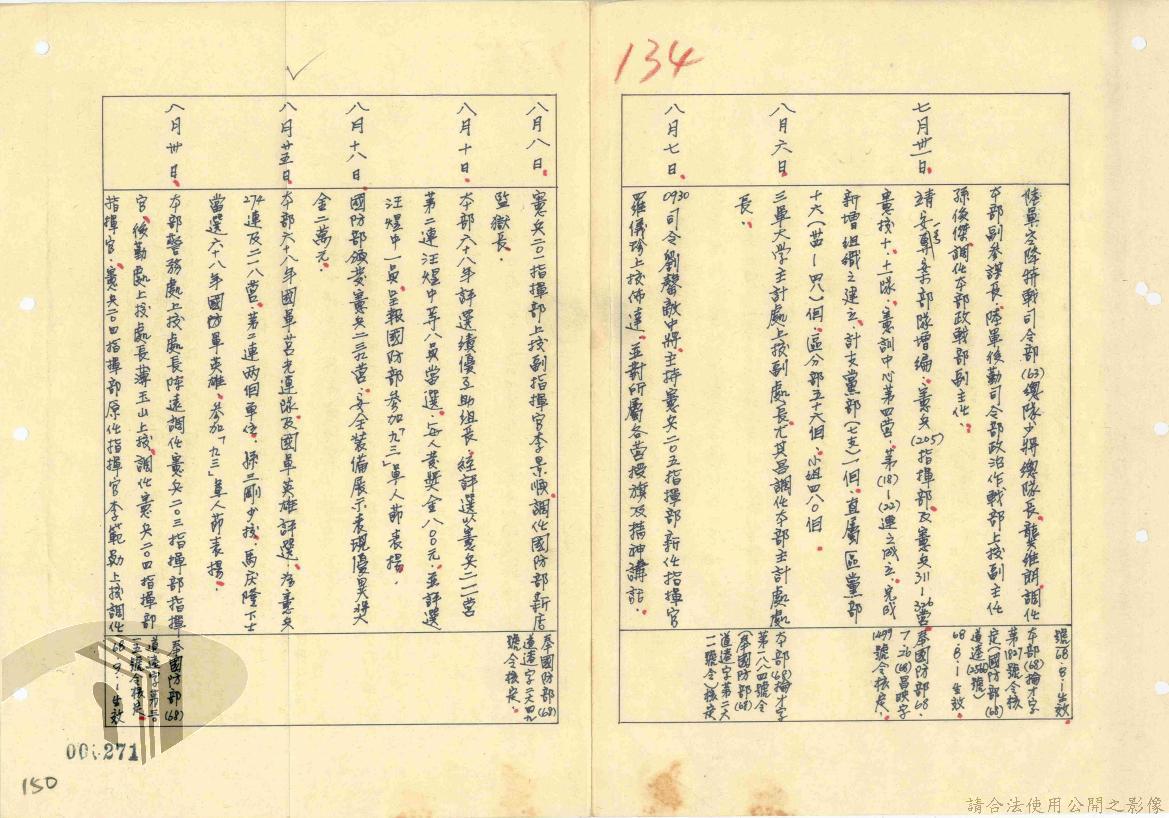 134
陸軍空降特戰司令部(63)總隊少將總隊長龔維朗調任
本部副參謀長。陸軍後勤司令部政治作戰部上校副主任
孫俊傑調任本部政戰部副主任。
號68.8.1生效
本部(68)掄才字
第1807號令核
定(國防部(68)
道遠(2560號)
68.8.1生效。
七月卅一日。
靖安一號專案部隊增編:憲兵(205)指揮部及憲兵311-326營
憲校十、十一隊、憲訓中心第四營、第(18)-(22)連之成立,完成
新增組織之建立,計支黨部(七支)一個、直屬區黨部
十六(苗-四八)個、區分部五十六個、小組四八0個。
奉國防部68.
7.26(68)昌映字
1499號令核定。
八月六日。
三軍大學主計處上校副處長尤其昌調任本部主計處處
長。
本部(68)掄才字
第一八八四號令
(奉國防部(68)
道遠字第二六
一一號令)核定
八月七日。
0930司令劉馨敵中將主持憲兵二0五指揮部新任指揮官
羅儀珍上校佈達,並對所屬各營授旗及精神講話。
八月八日。
憲兵二0二指揮部上校副指揮官李景順調任國防部新店
監獄長。
奉國防部(68)
道遠字二六四九
號令核定。
八月十日。
本部六十八年評選績優互助組長,經評選以憲兵二一一營
第二連汪煜中等八員當選,每人發獎金八00元,並評選
汪煜中一員呈報國防部參加「九三」軍人節表揚。
八月十八日。
國防部頒發憲兵二三九營:安全裝備展示表現優異獎
金二萬元。
八月廿五日。
本部六十八年國軍莒光連隊及國軍英雄評選:為憲兵
274連及二一八營。第二連兩個單位,孫三剛少校、馬庆隆下士
當選六十八年國防軍英雄,參加「九三」軍人節表揚。
八月卅日。
本部警務處上校處長陳遠調任憲兵二0三指揮部指揮
官、後勤處上校處長薄玉山上校調任憲兵二0四指揮部
指揮官、憲兵二0四指揮部原任指揮官李範勛上校調任
奉國防部(68)
道遠字第三0
一五號令核定。
68.9.1生效
150
271
請合法使用公開之影像